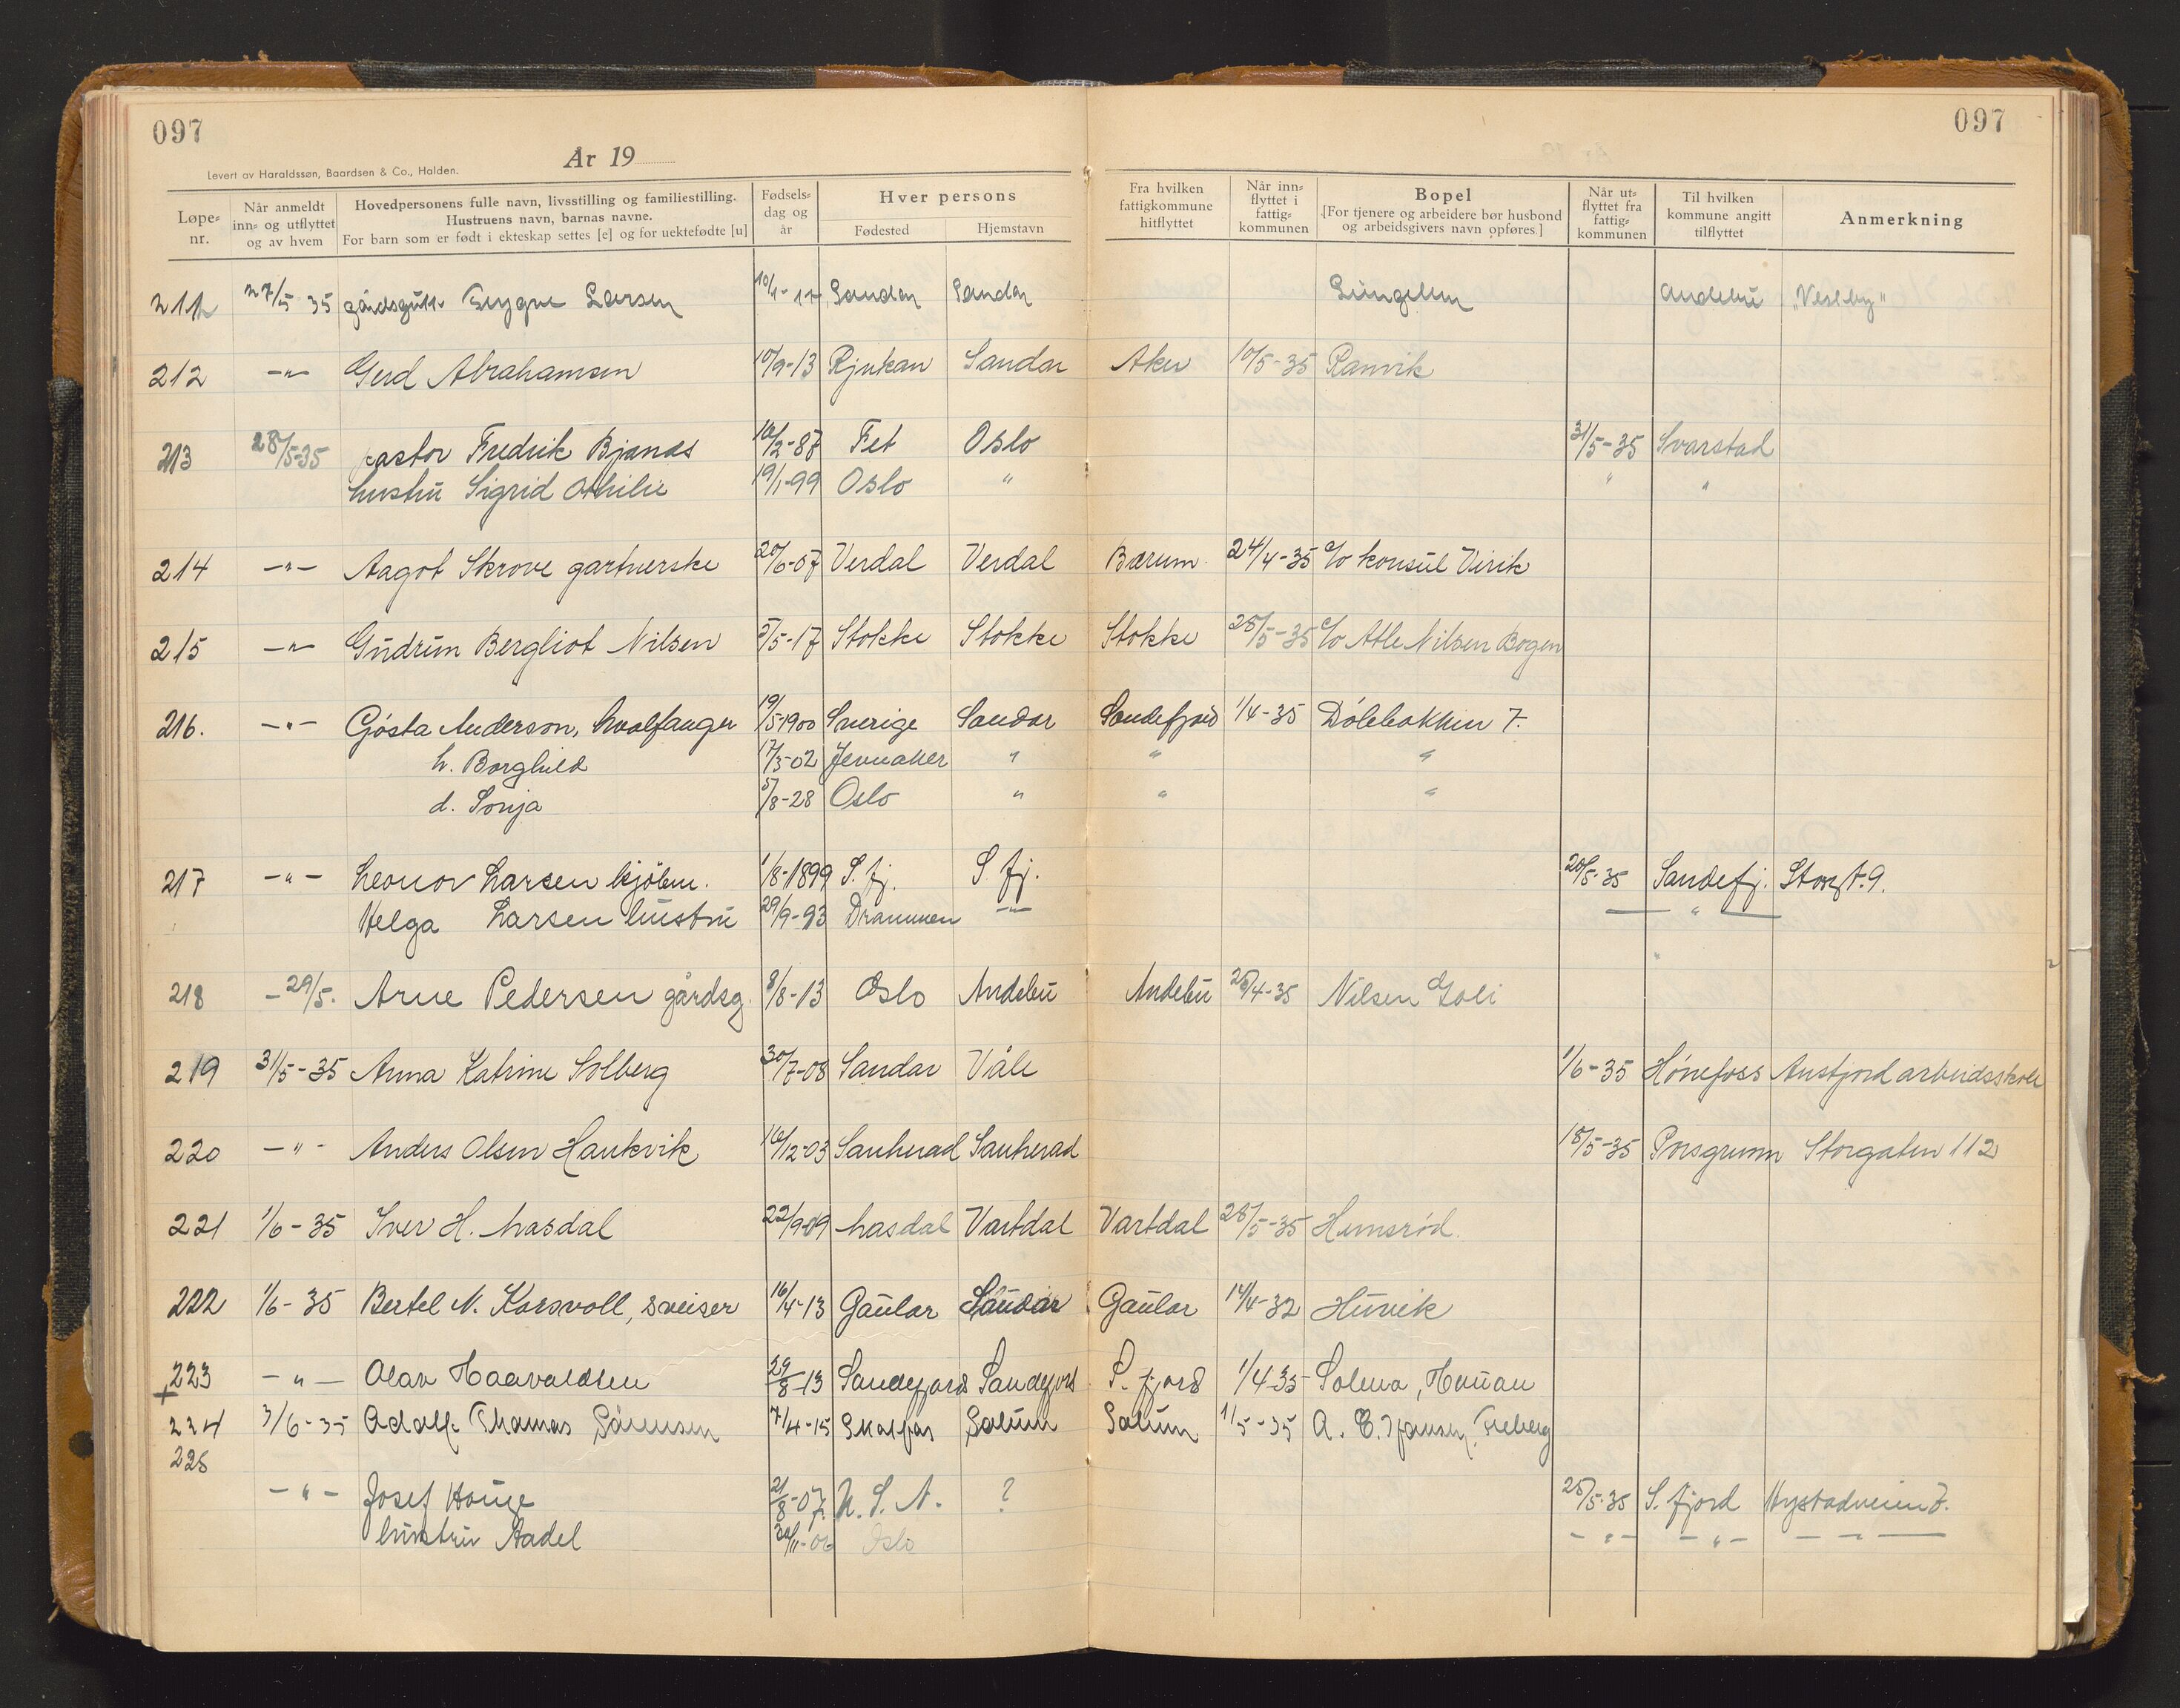 097
097
År 19
Levert av Haraldssøn, Baardsen & Co., Halden.
Løpe-nr. Når anmeldt inn- og utflyttet og av hvem Hovedpersonens fulle navn, livsstilling og familiestilling. Hustruens navn, barnas navne. For barn som er født i ekteskap settes [e] og for uektefødte [u] Fødsels-dag og år Hver persons Fødested Hjemstavn Fra hvilken fattigkommune hitflyttet Når inn-flyttet i fattig-kommunen Bopel [For tjenere og arbeidere bør husbond og arbeidsgivers navn opføres.] Når ut-flyttet fra fattig-kommunen Til hvilken kommune angitt tilflyttet Anmerkning
211 27/5 35 gårdsgutt Trygve Larsen 10/1-17 Sandar Sandar Andebu "Vestby"
212 -"- Gerd Abrahamsen 10/9-13 Rjukan Sandar Aker 10/5-35 Ranvik
213 28/5-35 pastor Fredrik Bjanes 10/2-87 Fet Oslo 31/5-35 Svarstad
hustru Sigrid Othilie 19/1-99 Oslo " " "
214 -"- Aagot Skrove gartnerske 20/6-07 Verdal Verdal Bærum 24/4-35 c/o konsul Virik
215 -"- Gudrun Bergliot Nilsen 5/5-17 Stokke Stokke Stokke 25/5-35 c/o Atle Nilsen Bogen
216. -"- Gøsta Anderson, hvalfanger 19/5-1900 Sverige Sandar Sandefjord 1/4-35 Dølebakken 7.
h. Borghild 17/3-02 Jevnaker " " "
d. Sonja 5/8-28 Oslo " " "
217 -"- Leonor Larsen kjøbm. 1/8-1899 S. fj. S. fj. 20/5-35 Sandefj. Storgt. 9.
Helga Larsen hustru 29/9-93 Drammen -"- — " —
"
218 -29/5. Arne Pedersen gårdsg. 8/8-13 Oslo Andebu Andebu 26/4-35 Nilsen Goli
219 31/5-35 Anna Katrine Solberg 30/7-08 Sandar Våle 1/6-35 Hønefoss Austjord arbeidsskole
220 -"- Anders Olsen Haukvik 16/12-03 Sauherad Sauherad 18/5-35 Porsgrunn Storgaten 112
221 1/6-35 Iver H. Masdal 22/9-09 Masdal Vartdal Vartdal 28/5-35 Hunsrød.
222 1/6-35 Bertel N. Korsvoll, sveiser 16/4-13 Gaular Sandar Gaular 14/4-32 Huvik
223 -"- Olav Haavaldsen 29/8-13 Sandefjord Sandefjord S. fjord 1/4-35 Solena, Hauan
+
224 3/6-35 Adolf Thomas Sørensen 7/4-15 Skotfos Solum Solum 1/5-35 A. E. Jansen, Freberg
225
-"- Josef Hauge 21/8-07. U. S. A. ? 25/5-35 S. fjord Hystadveien 7.
hustru Aadel 30/11-06 Oslo -"- -"- -"-